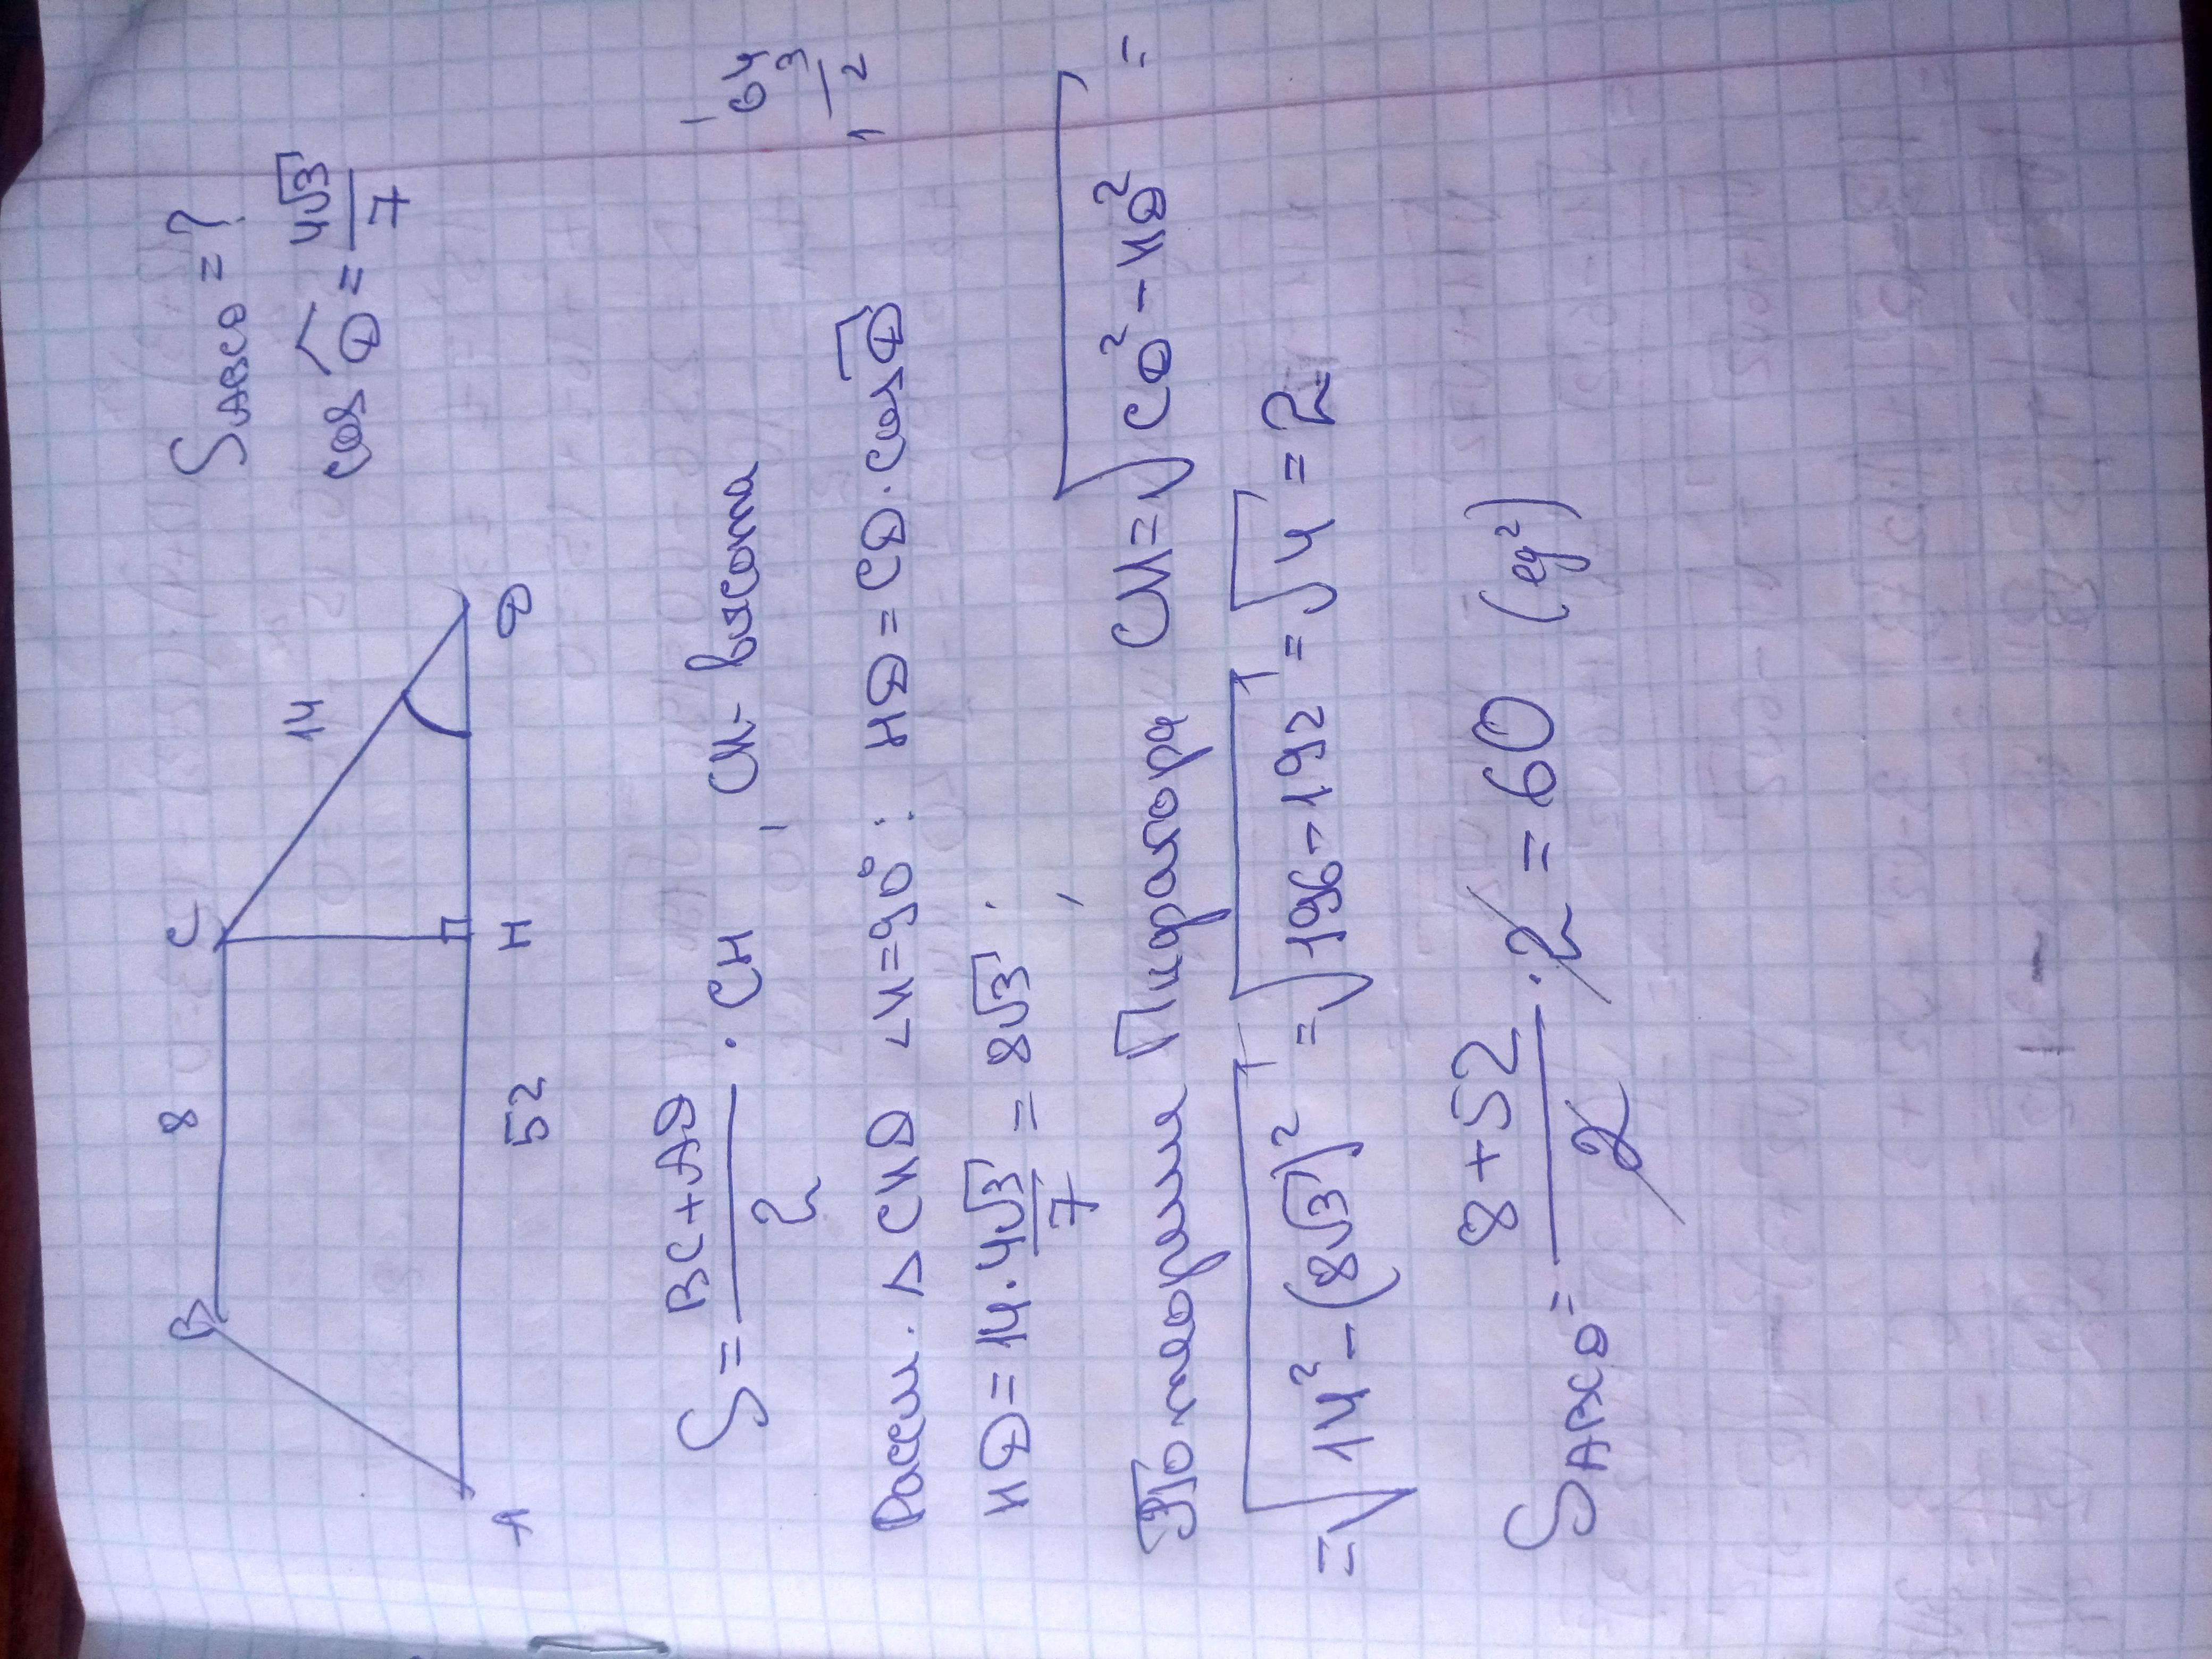 S ABCD = ?
cos D̂ = 4√3/7
B 8 C 14
A 52 H D
S = (BC + AD)/2 · CH, CH - высота
1 64
3
1 2
Рассм. △ CHD ∠H = 90° : HD = CD · cos D̂
HD = 14 · 4√3/7 = 8√3 ;
По теореме Пифагора CH = √(CD² - HD²) =
= √(14² - (8√3)²) = √(196 - 192) = √4 = 2
S ABCD = (8 + 52)/2 · 2 = 60 (ед²)